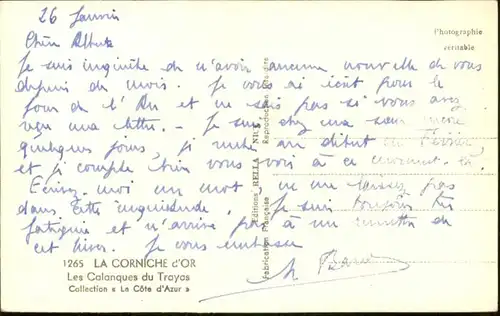 26 Janvier
Photographie
véritable
Chère
Je suis inquiète de n'avoir aucune nouvelle de vous
depuis du mois. Je vous ai écrit pour le
Jour de l'An et ne sais pas si vous avez
reçu ma lettre - Je suis chez ma sœur encore
quelques jours, je rentre au début de Février,
et je compte bien vous voir à ce moment-là.
Écrivez-moi un mot, ne me laissez pas
dans cette inquiétude. Je suis toujours très
fatiguée et n'arrive pas à me remettre de
cet hiver. Je vous embrasse
Editions RELLA NICE
Fabrication Française Reproduction interdite
1265 LA CORNICHE d'OR
Les Calanques du Trayas
Collection « La Côte d'Azur »